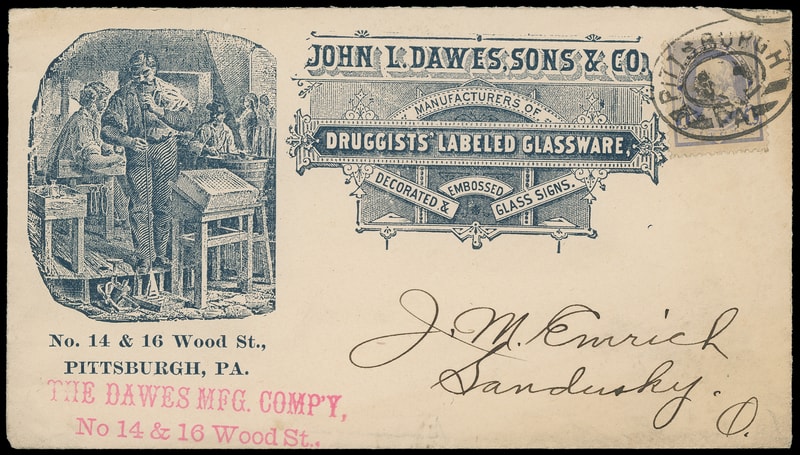 JOHN L. DAWES, SONS & CO.
MANUFACTURERS OF
DRUGGISTS' LABELED GLASSWARE,
DECORATED & EMBOSSED GLASS SIGNS.
PITTSBURGH
PA
No. 14 & 16 Wood St.,
PITTSBURGH, PA.
THE DAWES MFG. COMP'Y,
No 14 & 16 Wood St.,
J. M. Emrich
Sandusky.
O.